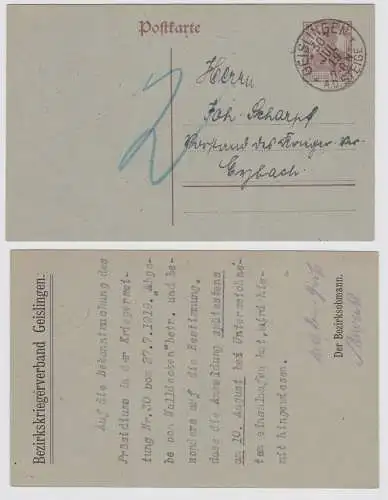 Postkarte
GEISLINGEN
A.D. STEIGE
Herrn
Joh. Scharpf
Vorstand des Krieger-Ver.
Eybach.
2
Bezirkskriegerverband Geislingen.
Auf die Bekanntmachung des
Präsidiums in der Kriegerzei-
tung Nr.30 vom 27.7.1919 "Abga-
be von Wolldecken"betr. und be-
sonders auf die Bestimmung,
dass die Anmeldung spätestens
am 10. August bei Unterzeichne-
tem einzulaufen hat,wird hie-
mit hingewiesen.
Der Bezirksobmann.